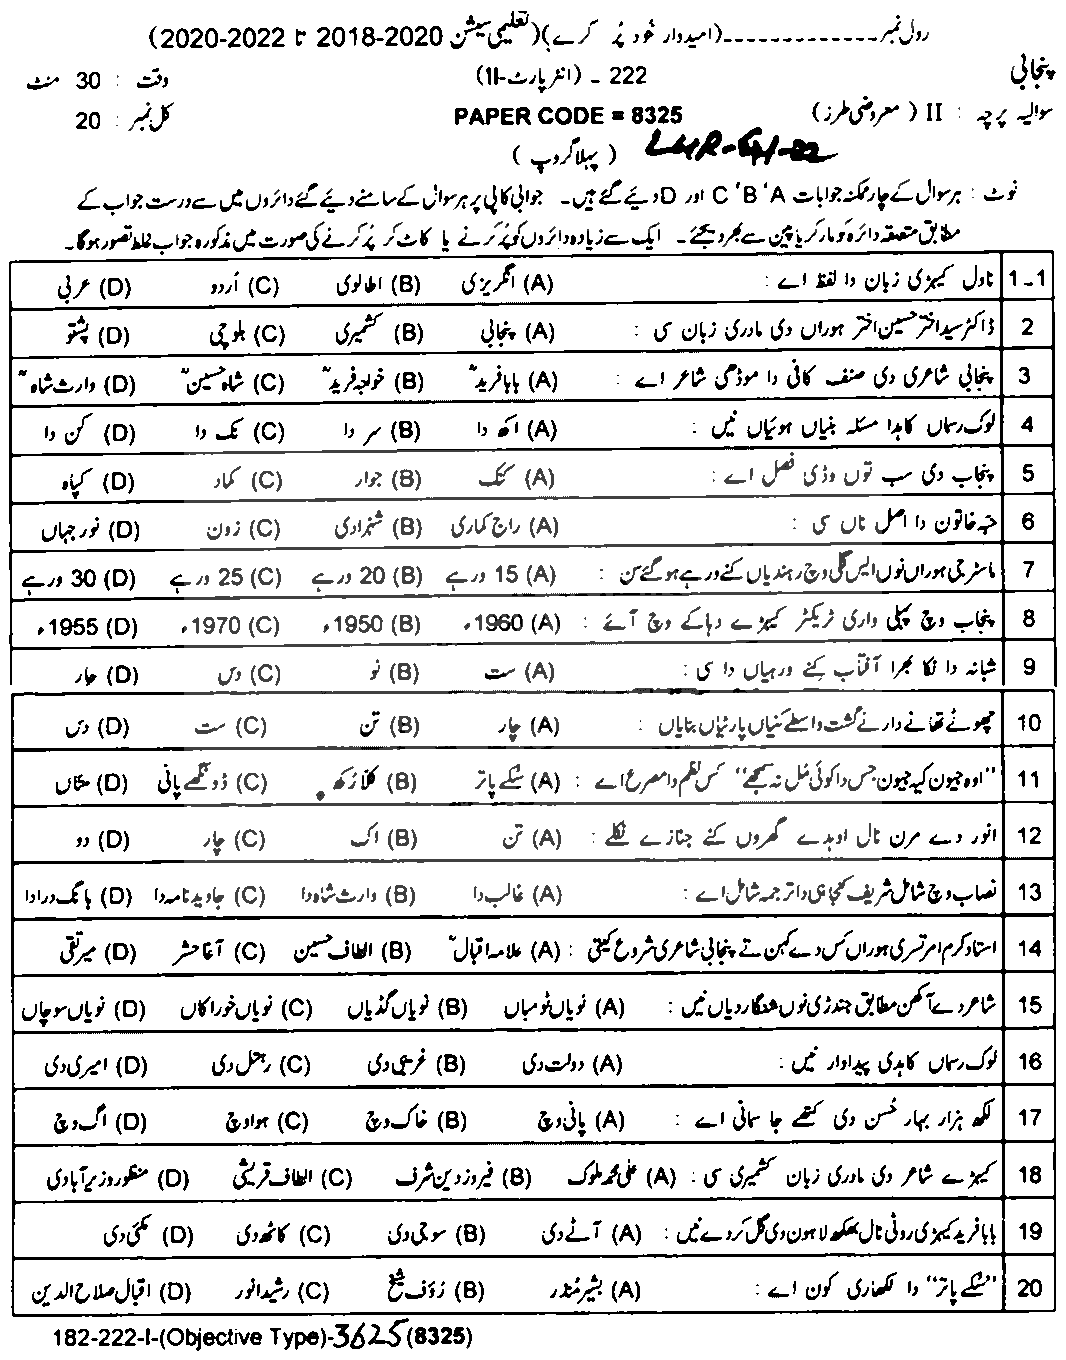 رول نمبر ـــــــــــــــــ (امیدوار خود پُر کرے) (تعلیمی سیشن 2020-2018 تا 2022-2020)
پنجابی 222 - (انٹر پارٹ-II) وقت : 30 منٹ
سوالیہ پرچہ : II (معروضی طرز) PAPER CODE = 8325 کل نمبر : 20
(پہلا گروپ) LHR-G1-22
نوٹ : ہر سوال کے چار ممکنہ جوابات A'B'C اور D دیے گئے ہیں۔ جوابی کاپی پر ہر سوال کے سامنے دیے گئے دائروں میں سے درست جواب کے
مطابق متعلقہ دائرہ کو مارکر یا پین سے بھر دیجئے۔ ایک سے زیادہ دائروں کو پُر کرنے یا کاٹ کر پُر کرنے کی صورت میں مذکورہ جواب غلط تصور ہوگا۔
1-1 ناول کیہڑی زبان دا لفظ اے : (A) انگریزی (B) اطالوی (C) اُردو (D) عربی
2 ڈاکٹر سید اختر حسین اختر ہوراں دی مادری زبان سی : (A) پنجابی (B) کشمیری (C) بلوچی (D) پشتو
3 پنجابی شاعری دی صنف کافی دا موڈھی شاعر اے : (A) بابا فریدؒ (B) خواجہ فریدؒ (C) شاہ حسینؒ (D) وارث شاہؒ
4 لوک رسماں کاہدا مسئلہ بنیاں ہوئیاں نیں : (A) اکھ دا (B) سر دا (C) نک دا (D) کن دا
5 پنجاب دی سب توں وڈی فصل اے : (A) کنک (B) جوار (C) کماد (D) کپاہ
6 حبہ خاتون دا اصل ناں سی : (A) راج کماری (B) شہزادی (C) زون (D) نور جہاں
7 ماسٹر جی ہوراں نوں ایس گلی وچ رہندیاں کنے ورہے ہو گئے سن : (A) 15 ورہے (B) 20 ورہے (C) 25 ورہے (D) 30 ورہے
8 پنجاب وچ پہلی واری ٹریکٹر کیہڑے دہاکے وچ آئے : (A) 1960ء (B) 1950ء (C) 1970ء (D) 1955ء
9 شبانہ دا نکا بھرا آفتاب کنے ورہیاں دا سی : (A) ست (B) نو (C) دس (D) چار
10 چھوٹے تھانے دار نے گشت واسطے کنیاں پارٹیاں بنایاں : (A) چار (B) تن (C) ست (D) دس
11 "اوہ جیون کیہ جیون جس دا کوئی مُل نہ سمجھے" کس نظم دا مصرع اے : (A) سُکے پاتر (B) کلا رُکھ (C) ڈونگھے پانی (D) مٹاں
12 انور دے مرن نال اوہدے گھروں کنے جنازے نکلے : (A) تن (B) اک (C) چار (D) دو
13 نصاب وچ شامل شریف کنجاہی دا ترجمہ شامل اے : (A) غالب دا (B) وارث شاہ دا (C) جاوید نامہ دا (D) بانگ درا دا
14 استاد کرم امرتسری ہوراں کس دے کہن تے پنجابی شاعری شروع کیتی : (A) علامہ اقبالؒ (B) الطاف حسین (C) آغا حشر (D) میر تقی
15 شاعر دے آکھن مطابق جندڑی نوں شنگاردیاں نیں : (A) نویاں ٹومباں (B) نویاں گڈیاں (C) نویاں خوراکاں (D) نویاں سوچاں
16 لوک رسماں کاہدی پیداوار نیں : (A) دولت دی (B) غریبی دی (C) رہتل دی (D) امیری دی
17 لکھ ہزار بہار حُسن دی کتھے جا سمانی اے : (A) پانی وچ (B) خاک وچ (C) ہوا وچ (D) اگ وچ
18 کیہڑے شاعر دی مادری زبان کشمیری سی : (A) علی محمد ملوک (B) فیروز دین شرف (C) الطاف قریشی (D) منظور وزیر آبادی
19 بابا فرید کیہڑی روٹی نال بھکھ لاہون دی گل کردے نیں : (A) آٹے دی (B) سوجی دی (C) کاٹھ دی (D) مکئی دی
20 "سُکے پاتر" دا لکھاری کون اے : (A) بشیر منذر (B) رؤف شیخ (C) رشید انور (D) اقبال صلاح الدین
182-222-I-(Objective Type)-3625 (8325)